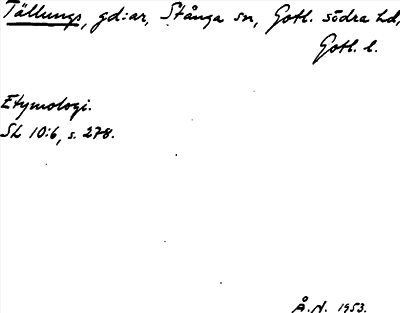 Tällungs, gd:ar, Stånga sn, Gotl. södra hd,
Gotl. l.
Etymologi.
SL 10:6, s. 278.
Å.N. 1953.